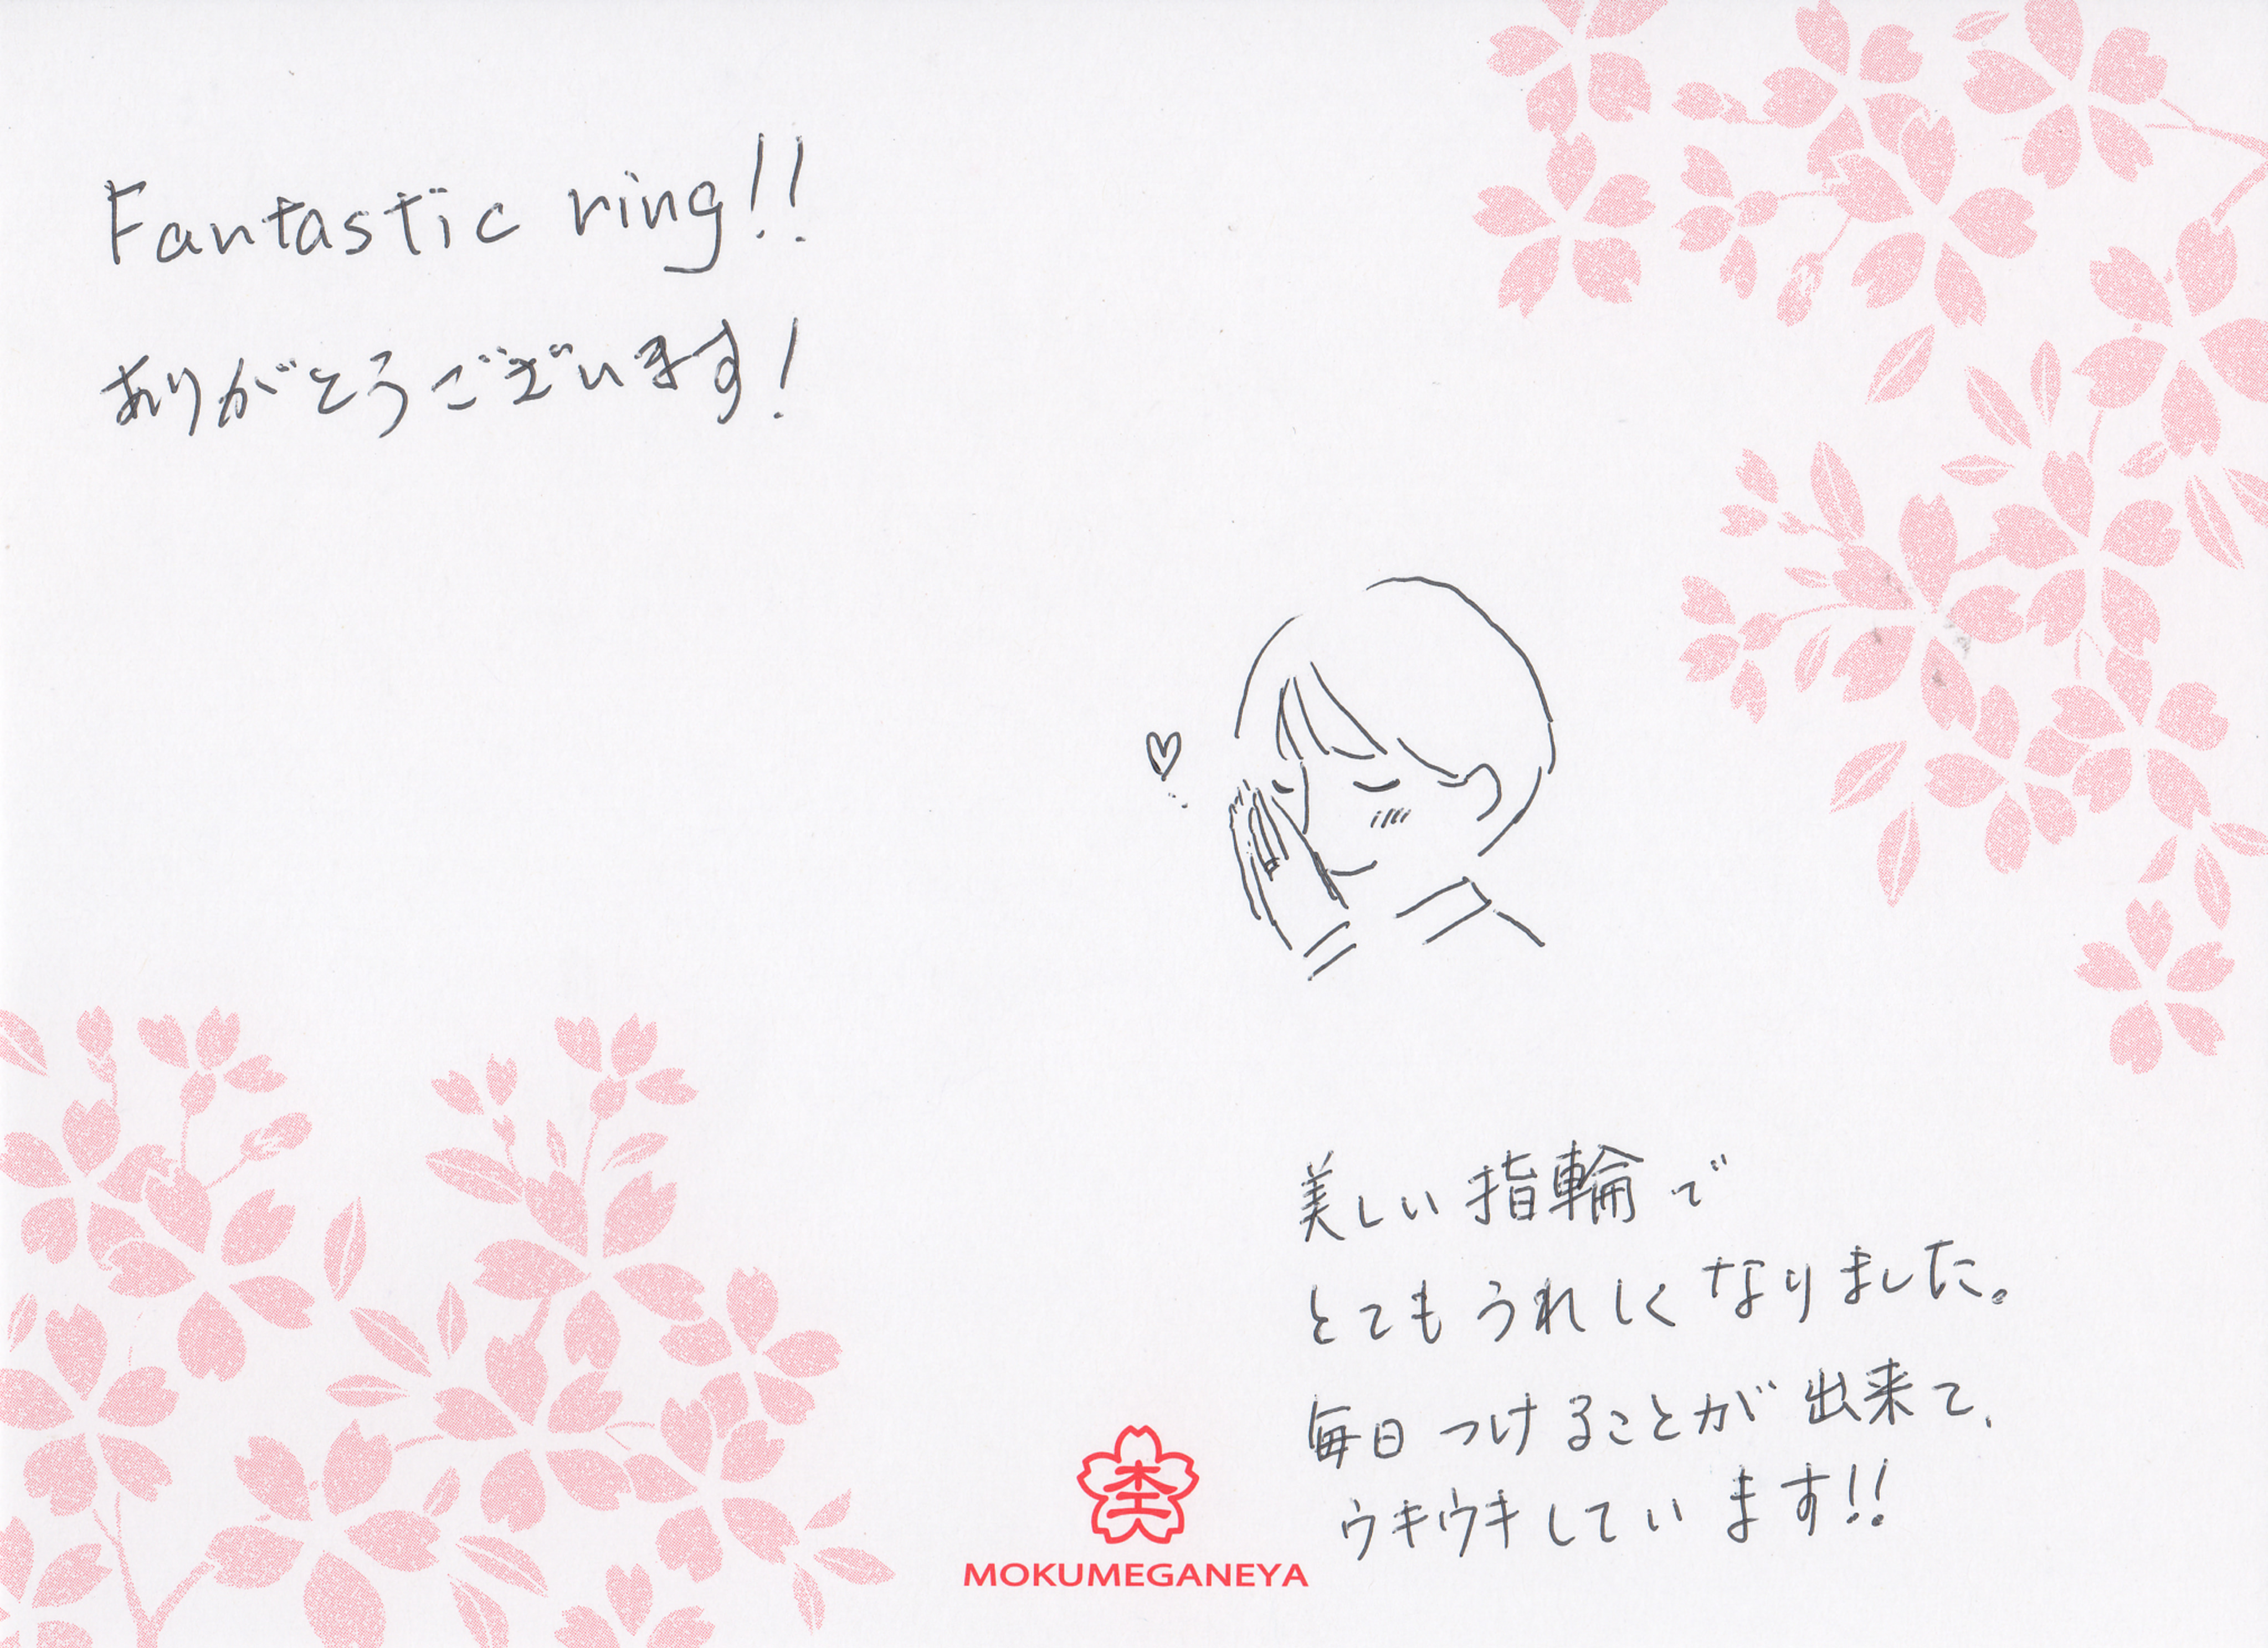 Fantastic ring!!
ありがとうございます!
美しい指輪で
とてもうれしくなりました。
毎日つけることが出来て、
ウキウキしています!!
杢
MOKUMEGANEYA